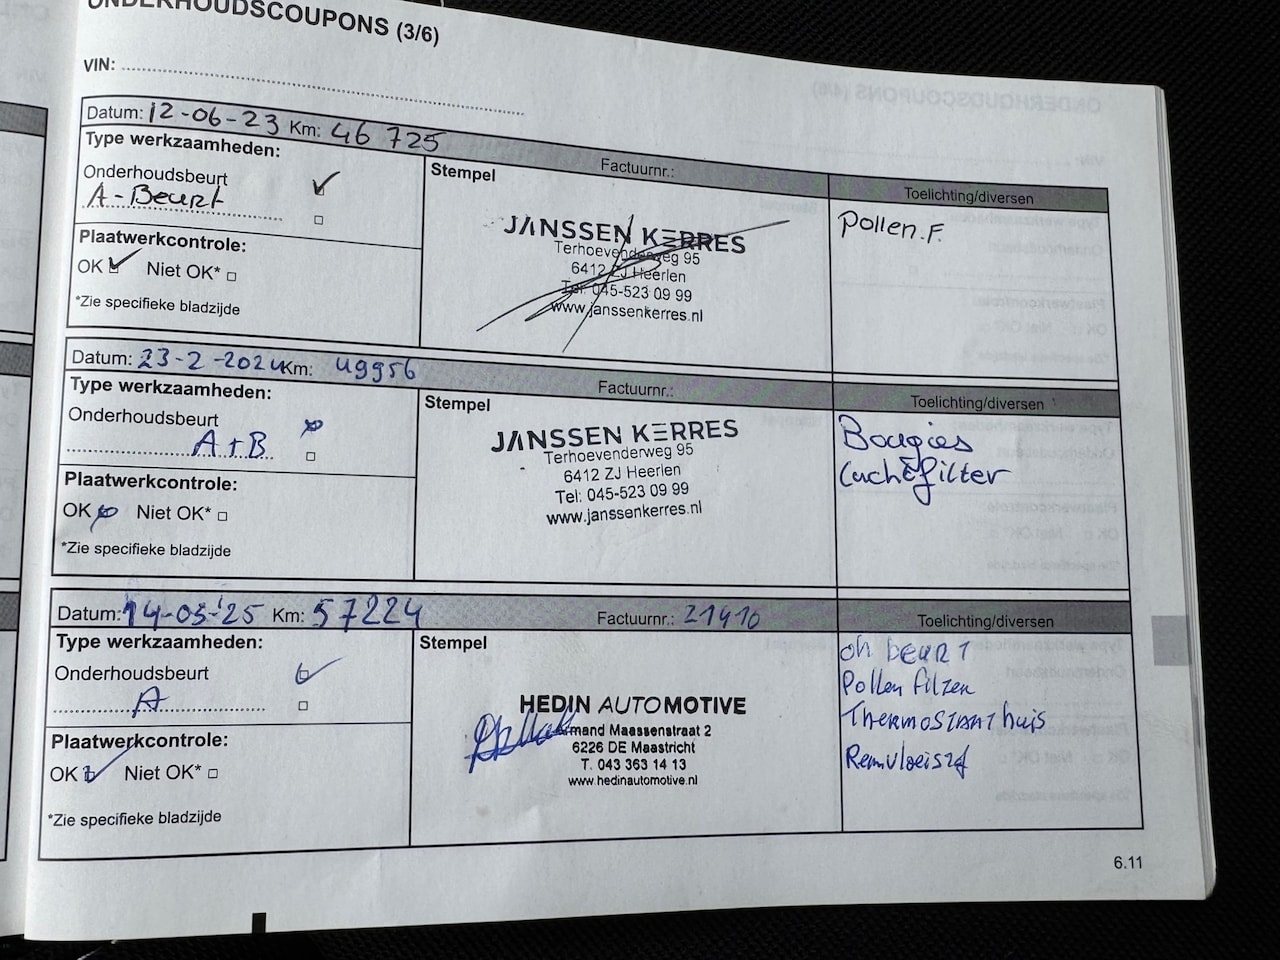 ONDERHOUDSCOUPONS (3/6)
VIN: ..........
Datum: 12-06-23 Km: 46 725
Factuurnr.:
Type werkzaamheden:
Onderhoudsbeurt
A-Beurt
Plaatwerkcontrole:
OK Niet OK*
*Zie specifieke bladzijde
Stempel
JANSSEN KERRES
Terhoevenderweg 95
6412 ZJ Heerlen
Tel: 045-523 09 99
www.janssenkerres.nl
Toelichting/diversen
Pollen.F.
Datum: 23-2-2024 Km: 49956
Factuurnr.:
Type werkzaamheden:
Onderhoudsbeurt
A+B
Plaatwerkcontrole:
OK Niet OK*
*Zie specifieke bladzijde
Stempel
JANSSEN KERRES
Terhoevenderweg 95
6412 ZJ Heerlen
Tel: 045-523 09 99
www.janssenkerres.nl
Toelichting/diversen
Bougies
Luchtfilter
Datum: 14-03-'25 Km: 57224
Factuurnr.: 21410
Type werkzaamheden:
Onderhoudsbeurt
A
Plaatwerkcontrole:
OK Niet OK*
*Zie specifieke bladzijde
Stempel
HEDIN AUTOMOTIVE
mand Maassenstraat 2
6226 DE Maastricht
T. 043 363 14 13
www.hedinautomotive.nl
Toelichting/diversen
oh beurt
Pollen filter
Thermostaathuis
Remvloeistof
6.11